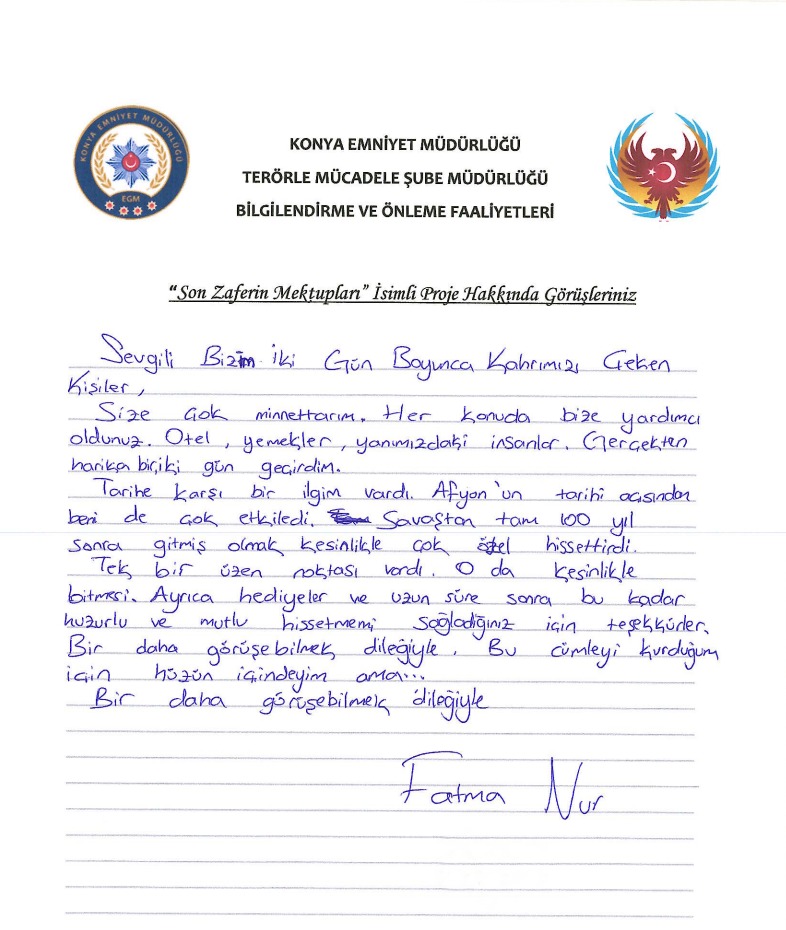 KONYA EMNİYET MÜDÜRLÜĞÜ
EGM
KONYA EMNİYET MÜDÜRLÜĞÜ
TERÖRLE MÜCADELE ŞUBE MÜDÜRLÜĞÜ
BİLGİLENDİRME VE ÖNLEME FAALİYETLERİ
"Son Zaferin Mektupları" İsimli Proje Hakkında Görüşleriniz
Sevgili Bizim İki Gün Boyunca Kahrımızı Çeken
Kişiler,
Size çok minnettarım. Her konuda bize yardımcı
oldunuz. Otel, yemekler, yanımızdaki insanlar. Gerçekten
harika bir iki gün geçirdim.
Tarihe karşı bir ilgim vardı. Afyon'un tarihi açısından
beni de çok etkiledi. Savaştan tam 100 yıl
sonra gitmiş olmak kesinlikle çok özel hissettirdi.
Tek bir üzen noktası vardı. O da kesinlikle
bitmesi. Ayrıca hediyeler ve uzun süre sonra bu kadar
huzurlu ve mutlu hissetmemi sağladığınız için teşekkürler.
Bir daha görüşebilmek dileğiyle. Bu cümleyi kurduğum
için hüzün içindeyim ama...
Bir daha görüşebilmek dileğiyle
Fatma Nur